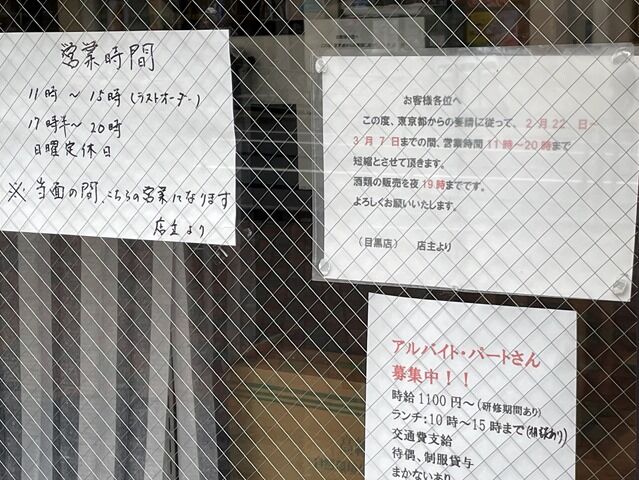 営業時間
11時～15時(ラストオーダー)
17時半～20時
日曜定休日
※当面の間、こちらの営業になります
店主より
お客様各位へ
この度、東京都からの要請に従って、2月22日～
3月7日までの間、営業時間11時～20時まで
短縮とさせて頂きます。
酒類の販売を夜19時までです。
よろしくお願いいたします。
(目黒店) 店主より
アルバイト・パートさん
募集中！！
時給1100円～(研修期間あり)
ランチ:10時～15時まで(相談あり)
交通費支給
待偶、制服貸与
まかないあり